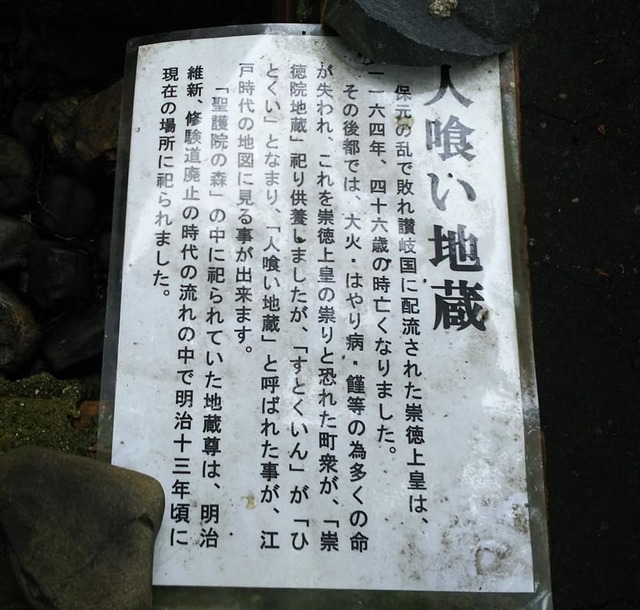 人喰い地蔵
保元の乱で敗れ讃岐国に配流された崇徳上皇は、
一一六四年、四十六歳の時亡くなりました。
その後都では、大火・はやり病・饉等の為多くの命
が失われ、これを崇徳上皇の祟りと恐れた町衆が、「崇
徳院地蔵」祀り供養しましたが、「すとくいん」が「ひ
とくい」となまり、「人喰い地蔵」と呼ばれた事が、江
戸時代の地図に見る事が出来ます。
「聖護院の森」の中に祀られていた地蔵尊は、明治
維新、修験道廃止の時代の流れの中で明治十三年頃に
現在の場所に祀られました。